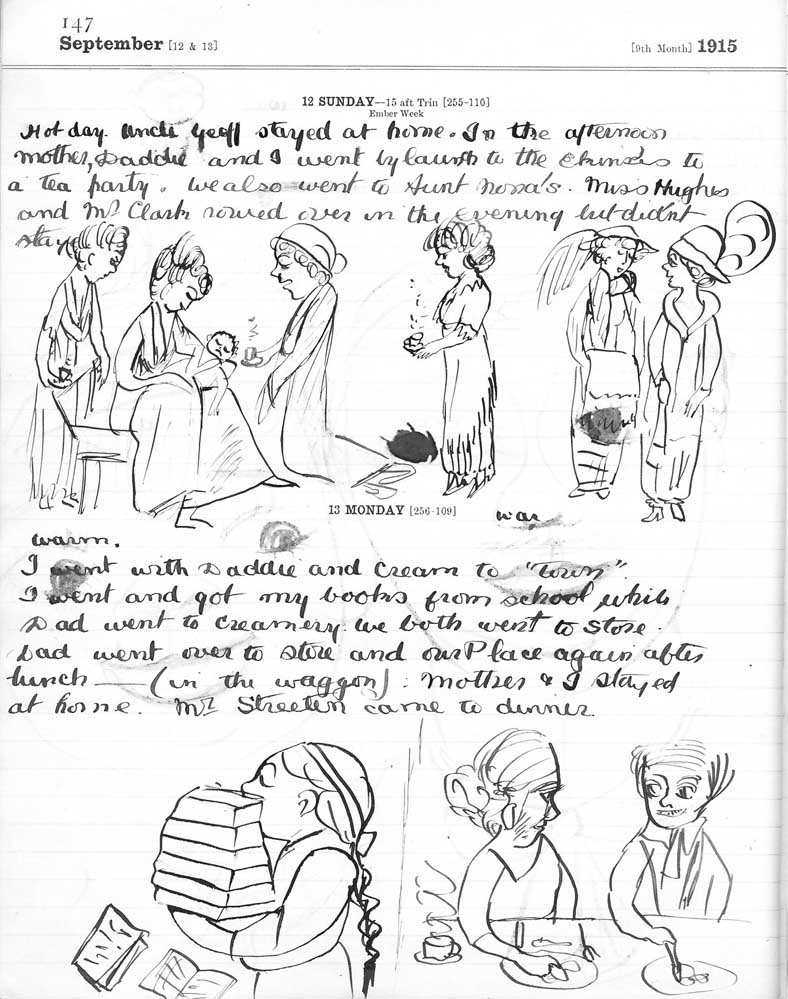 147
September [12 & 13] [9th Month] 1915
12 SUNDAY—15 aft Trin [255-110]
Ember Week
Hot day. Uncle Geoff stayed at home. In the afternoon
mother, Daddie and I went by launch to the to
a tea party. We also went to Aunt Nora's. Miss Hughes
and Mr Clark rowed over in the evening but didn't
stay
13 MONDAY [256-109]
war
warm.
I went with Daddie and Cream to "Town".
I went and got my books from school while
Dad went to Creamery. We both went to Store.
Dad went over to Store and our Place again after
lunch — (in the waggon). Mother & I stayed
at home. Mr Streeten came to dinner.